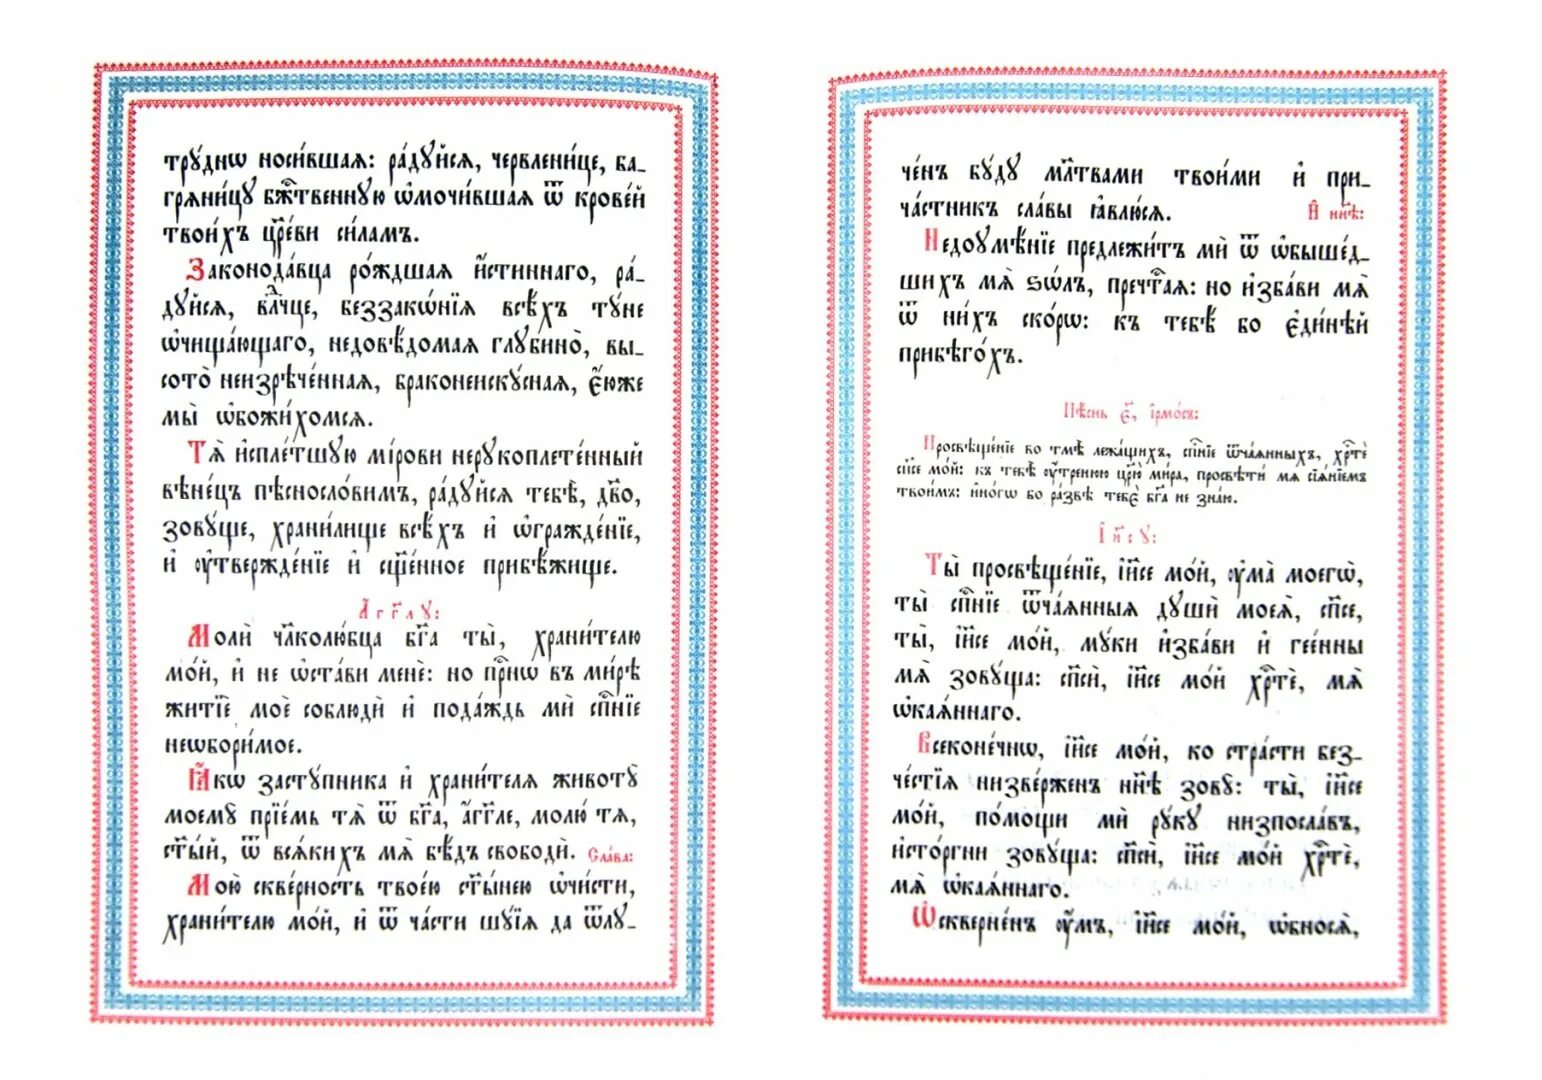 трꙋ́днѡ носи́вшаѧ: ра́дꙋйсѧ, червлени́це, ба-
грѧни́цꙋ бж҃е́ственнꙋю ѡ҆мочи́вшаѧ ѿ крове́й
твои́хъ цр҃е́ви си́ламъ.
Законода́вца ро́ждшаѧ и҆́стиннаго, ра́-
дꙋйсѧ, влⷣчце, беззакѡ́нїѧ всѣ́хъ тꙋ́не
ѡ҆чища́ющаго, недовѣ́домаѧ глꙋбино̀, вы-
сото̀ неизрече́ннаѧ, браконеискꙋ́снаѧ, є҆́юже
мы̀ ѡ҆божи́хомсѧ.
Тѧ̀ и҆спле́тшꙋю мі́рови нерꙋкоплете́нный
вѣне́цъ пѣсносло́вимъ, ра́дꙋйсѧ тебѣ̀, дв҃о,
зовꙋ́ще, храни́лище всѣ́хъ и҆ ѡ҆гражде́нїе,
и҆ ᲂу҆твержде́нїе и҆ сщ҃е́нное прибѣ́жище.
А҆́гг҃лꙋ:
Молѝ чл҃колю́бца бг҃а ты̀, храни́телю
мо́й, и҆ не ѡ҆ста́ви менѐ: но при́снѡ въ ми́рѣ
житїѐ моѐ соблюдѝ и҆ пода́ждь мѝ сп҃се́нїе
неѡбори́мое.
Ꙗ҆́кѡ застꙋ́пника и҆ храни́телѧ животꙋ̀
моемꙋ̀ прїе́мь тѧ̀ ѿ бг҃а, а҆́гг҃ле, молю́ тѧ,
ст҃ы́й, ѿ всѧ́кихъ мѧ̀ бѣ́дъ свободѝ. Сла́ва:
Мою̀ скве́рность твое́ю ст҃ы́нею ѡ҆чи́сти,
храни́телю мо́й, и҆ ѿ ча́сти шꙋ́їѧ да ѿлꙋ-
че́нъ бꙋ́дꙋ мл҃твами твои́ми и҆ при-
ча́стникъ сла́вы ꙗ҆влю́сѧ. И҆ ны́нѣ:
Недоꙋмѣ́нїе предлежи́тъ мѝ ѿ ѡ҆быше́д-
шихъ мѧ̀ ѕѡ́лъ, пречⷭ҇таѧ: но и҆зба́ви мѧ̀
ѿ ни́хъ ско́рѡ: къ тебѣ́ бо є҆ди́нѣй
прибѣго́хъ.
Пѣ́снь є҃, і҆рмо́съ:
Просвѣще́нїе во тмѣ̀ лежа́щихъ, сп҃се́нїе ѿча́ѧнныхъ, хрⷭ҇тѐ
сп҃се мо́й: къ тебѣ̀ ᲂу҆́тренюю цр҃ю̀ ми́ра, просвѣти́ мѧ сїѧ́нїемъ
твои́мъ: и҆но́гѡ бо ра́звѣ тебє̀ бг҃а не зна́ю.
І҆и҃сꙋ:
Ты̀ просвѣще́нїе, і҆и҃се мо́й, ᲂу҆ма̀ моегѡ̀,
ты̀ сп҃се́нїе ѿча́ѧнныѧ дꙋшѝ моеѧ̀, сп҃се,
ты̀, і҆и҃се мо́й, мꙋ́ки и҆зба́ви и҆ гее́нны
мѧ̀ зовꙋ́ща: сп҃сѝ, і҆и҃се мо́й хрⷭ҇тѐ, мѧ̀
ѡ҆каѧ́ннаго.
Всеконе́чнѡ, і҆и҃се мо́й, ко стра́сти без-
че́стїѧ низве́рженъ ны́нѣ зовꙋ̀: ты̀, і҆и҃се
мо́й, по́мощи мѝ рꙋ́кꙋ низпосла́въ,
и҆сто́ргни зовꙋ́ща: сп҃сѝ, і҆и҃се мо́й хрⷭ҇тѐ,
мѧ̀ ѡ҆каѧ́ннаго.
Ѡ҆скверне́нъ ᲂу҆́мъ, і҆и҃се мо́й, ѡ҆бносѧ̀,